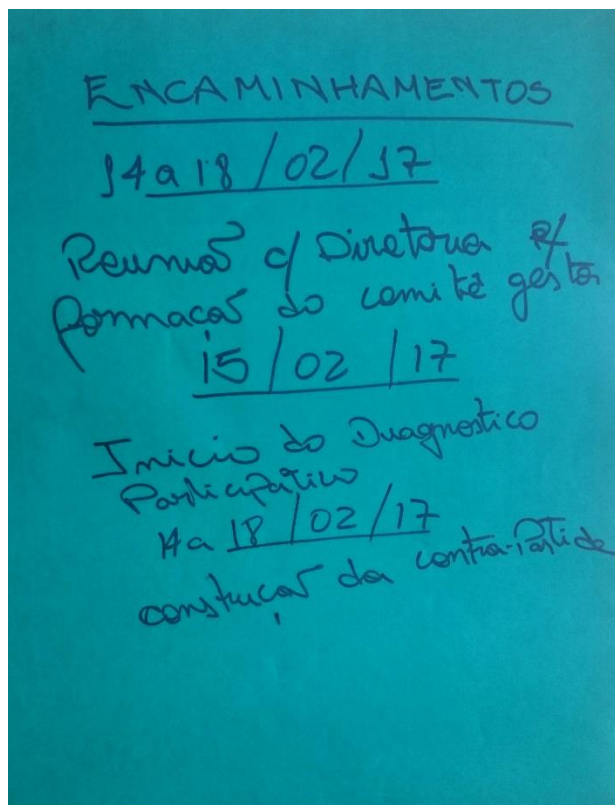 ENCAMINHAMENTOS
14 a 18 / 02 / 17
Reunião c/ Diretoria p/
formação do comitê gestor
15 / 02 / 17
Início do Diagnostico
Participativo
14 a 18 / 02 / 17
construção da contra-partida